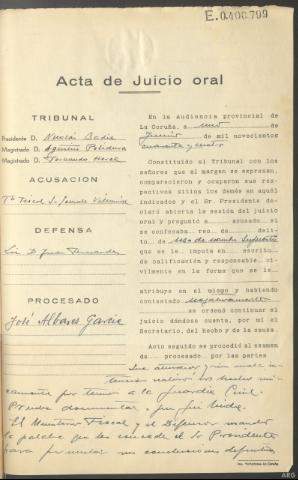 E.0408.799
Acta de Juicio oral
TRIBUNAL
Presidente D. Nicolás Badía
Magistrado D. Agustín Polidura
Magistrado D. Fernando Herce
ACUSACION
DEFENSA
Ldo. D. Juan Fernandez
PROCESADO
José Albores García
En la Audiencia provincial de
La Coruña, a uno de
Junio de mil novecientos
cuarenta y cuatro
Constituído el Tribunal con los
señores que al margen se expresan,
comparecieron y ocuparon sus res-
pectivos sitios los demás en aquél
indicados y el Sr. Presidente de-
claró abierta la sesión del juicio
oral y preguntó a acusado si
se confesaba reo de de-
lito de uso de nombre supuesto
que se imputa en escrito
de calificación y responsable ci-
vilmente en la forma que se le
atribuye en el mismo y habiendo
contestado negativamente
se ordenó continuar el
juicio dándose cuenta, por mi el
Secretario, del hecho y de la causa.
Acto seguido se procedió al examen
de procesado por las partes
por temor a la Guardia Civil
Prueba documental: por leída
El Ministerio Fiscal y el Defensor usando
la palabra que les concede el Sr Presidente
para formular sus conclusiones definitivas
ARG